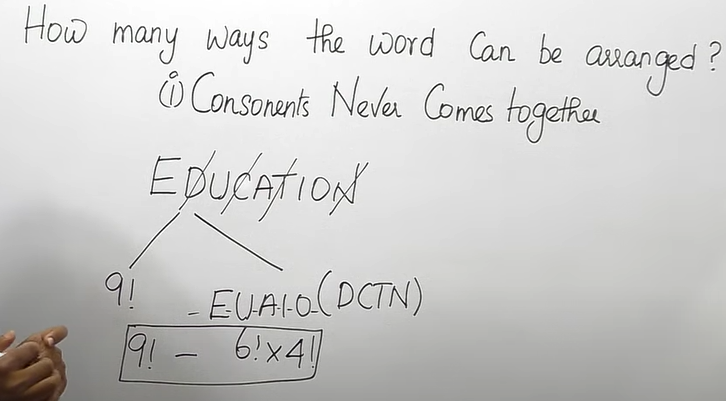 How many ways the word Can be arranged?
(i) Consonents Never Comes together
EDUCATION
9! - E-U-A-I-O-(DCTN)
9! - 6!×4!